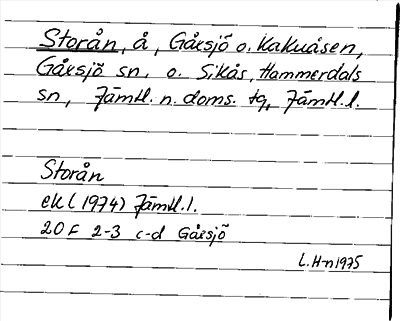 Storån, å, Gåxsjö o. Kakuåsen,
Gåxsjö sn. o. Sikås, Hammerdals
sn, Jämtl. n. doms. tg, Jämtl. l.
Storån
ek ( 1974) Jämtl. l.
20 F 2-3 c-d Gåxsjö
L. H-n 1975